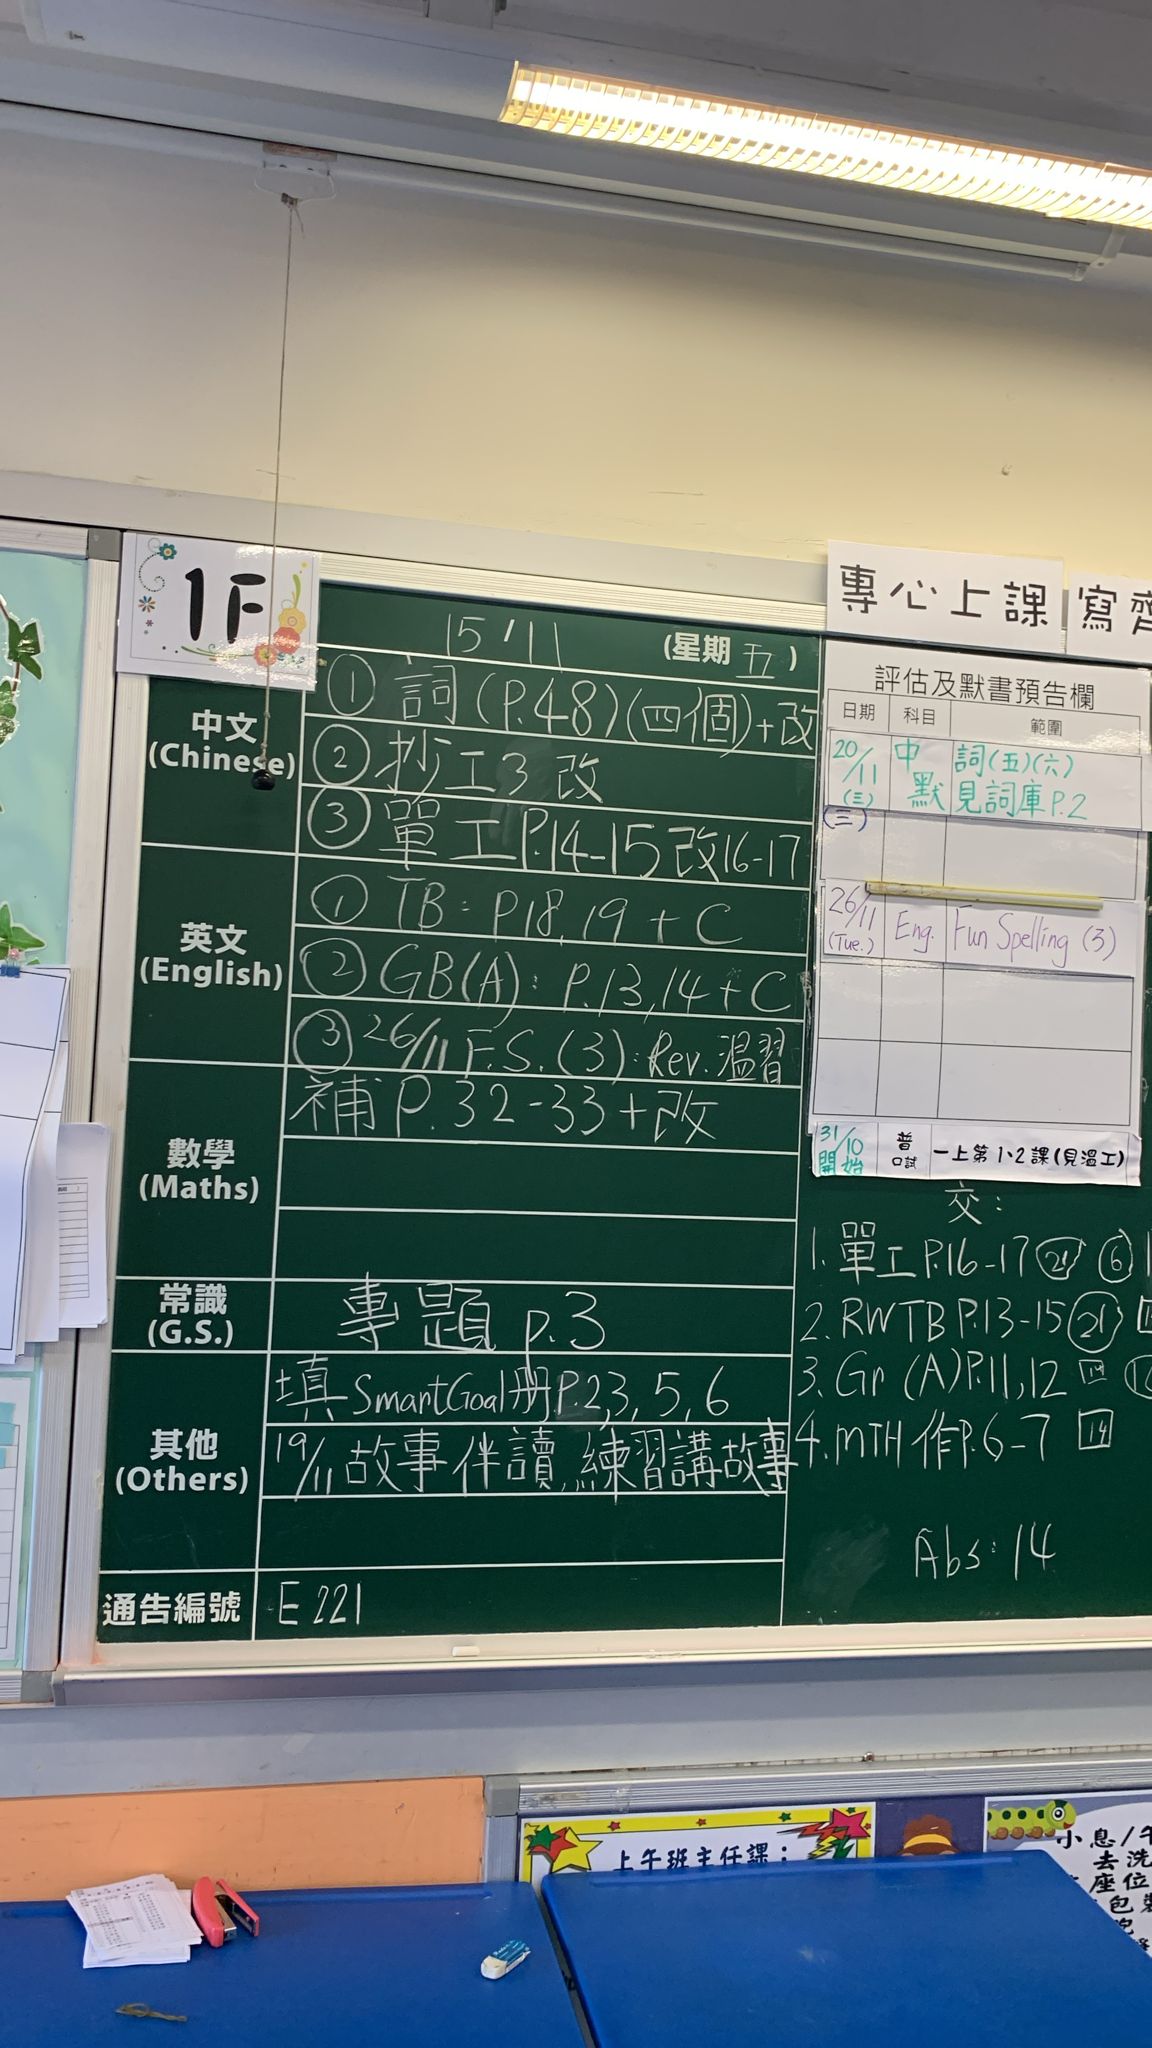 1F
15/11 (星期五)
中文
(Chinese)
① 詞(P.48)(四個)+改
② 抄工3 改
③ 單工P.14-15改16-17
英文
(English)
① TB: P18,19 + C
② GB(A): P.13,14 + C
③ 26/11 F.S.(3): Rev. 溫習
數學
(Maths)
補P.32-33+改
常識
(G.S.)
專題 p.3
其他
(Others)
填SmartGoal冊P.2,3,5,6
19/11 故事伴讀,練習講故事
通告編號
E221
專心上課 寫齊
評估及默書預告欄
日期 科目 範圍
20/11 (三) 中默 詞(五)(六) 見詞庫P.2
(三)
26/11 (Tue.) Eng. Fun Spelling (3)
31/10 開始 普口試 一上第1、2課(見溫工)
交:
1. 單工P.16-17 21 6
2. RWTB P.13-15 21
3. Gr (A)P.11,12 14
4. MTH作P.6-7 14
Abs: 14
上午班主任課:
小息/午
去洗
座位